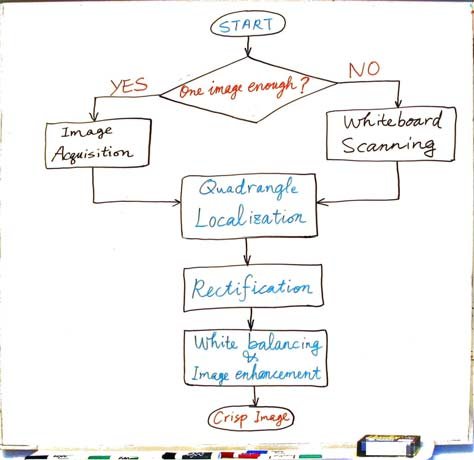 START
One image enough?
YES
NO
Image
Acquisition
Whiteboard
Scanning
Quadrangle
Localization
Rectification
White balancing
&
Image enhancement
Crisp Image